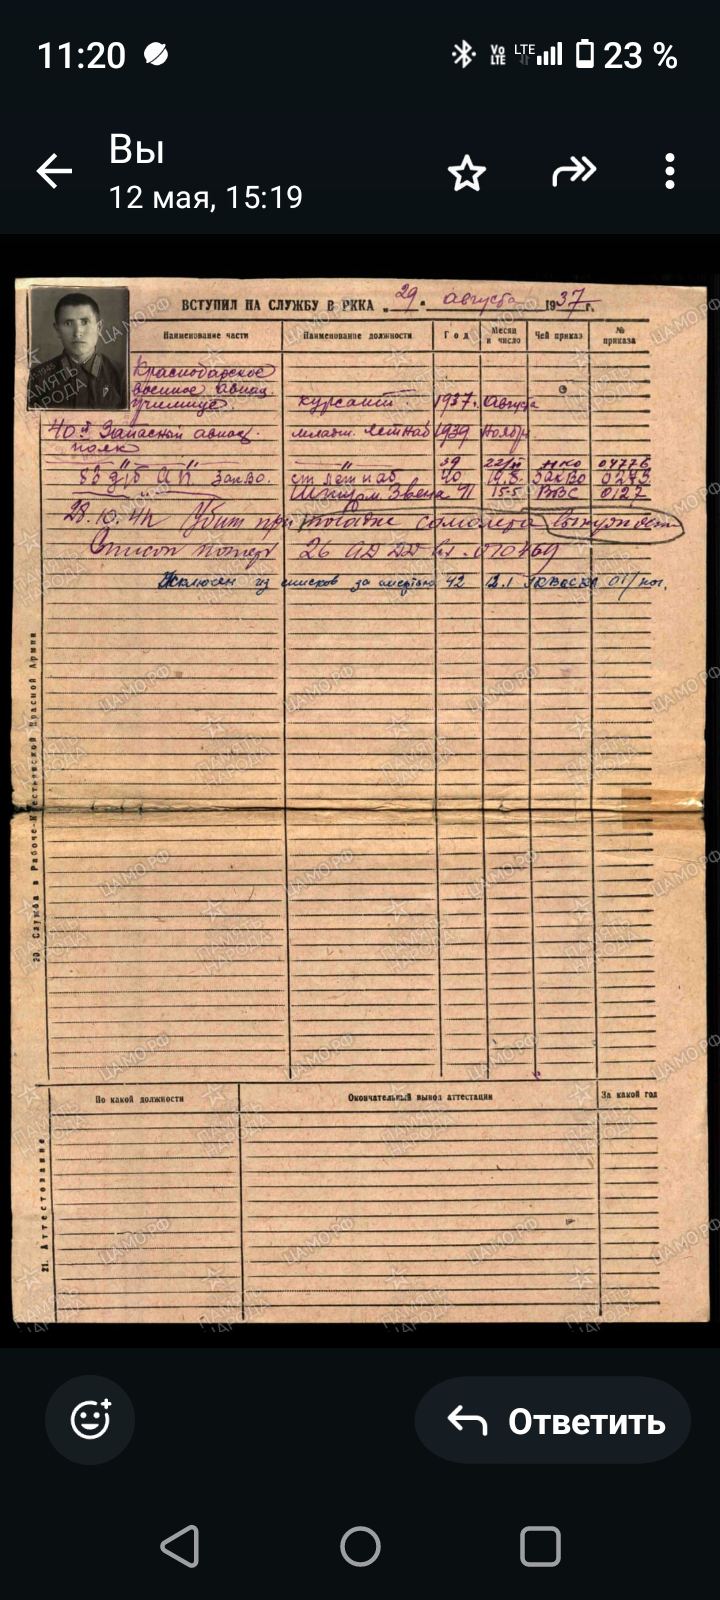 11:20 VoLTE LTE 23 %
Вы
12 мая, 15:19
ВСТУПИЛ НА СЛУЖБУ В РККА „29" августа 1937 г.
Наименование части Наименование должности Год Месяц и число Чей приказ № приказа
Краснодарское
военное авиац.
училище. курсант 1937. Августа
40й Запасной авиац. младш. летнаб 1939 Ноябрь
полк
39 22/II НКО 04776
ЗакВО. ст летнаб 40 19.8. ЗакВО 0243
Штурм. Звена 41 15.5 ВВС 0127
28.10.41г Убит при посадке самолета
Список потерь 26 АД ДД вх. 070469
Исключен из списков за смертью 42 12.1 01/
20. Служба в Рабоче-Крестьянской Красной Армии
По какой должности Окончательный вывод аттестации За какой год
21. Аттестование
ПАМЯТЬ НАРОДА
ЦАМО.РФ
Ответить